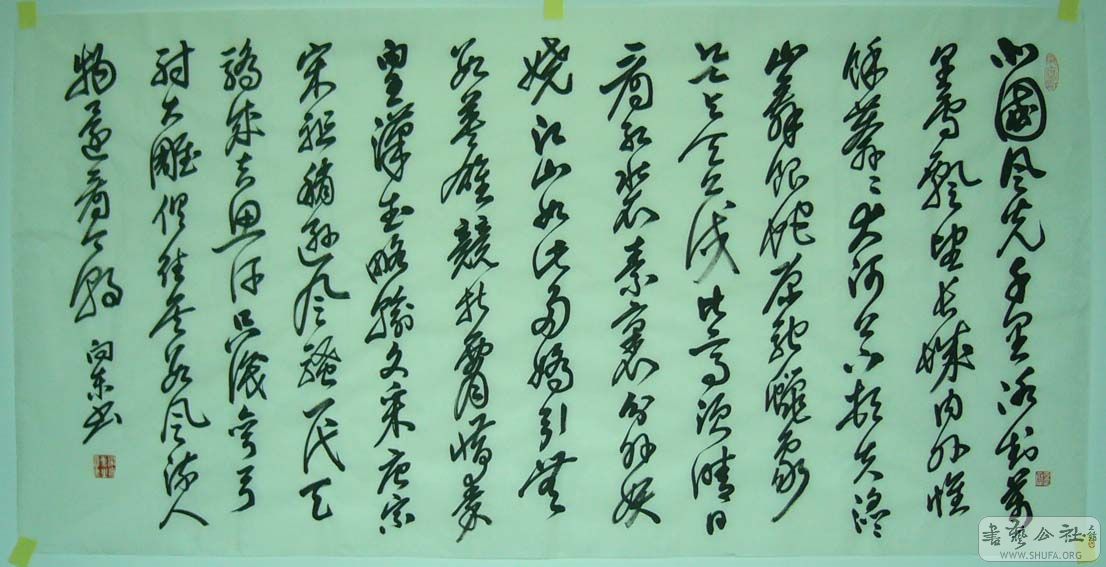 北國風光千里冰封萬
里雪飄望長城內外惟
餘莽〻大河上下頓失滔
〻山舞銀蛇原馳蠟象
欲與天公試比高須晴日
看紅裝素裹分外妖
嬈江山如此多嬌引無
數英雄競折腰惜秦
皇漢武略輸文采唐宗
宋祖稍遜風騷一代天
驕成吉思汗只識彎弓
射大雕俱往矣數風流人
物還看今朝
向東書
書藝公社
WWW.SHUFA.ORG